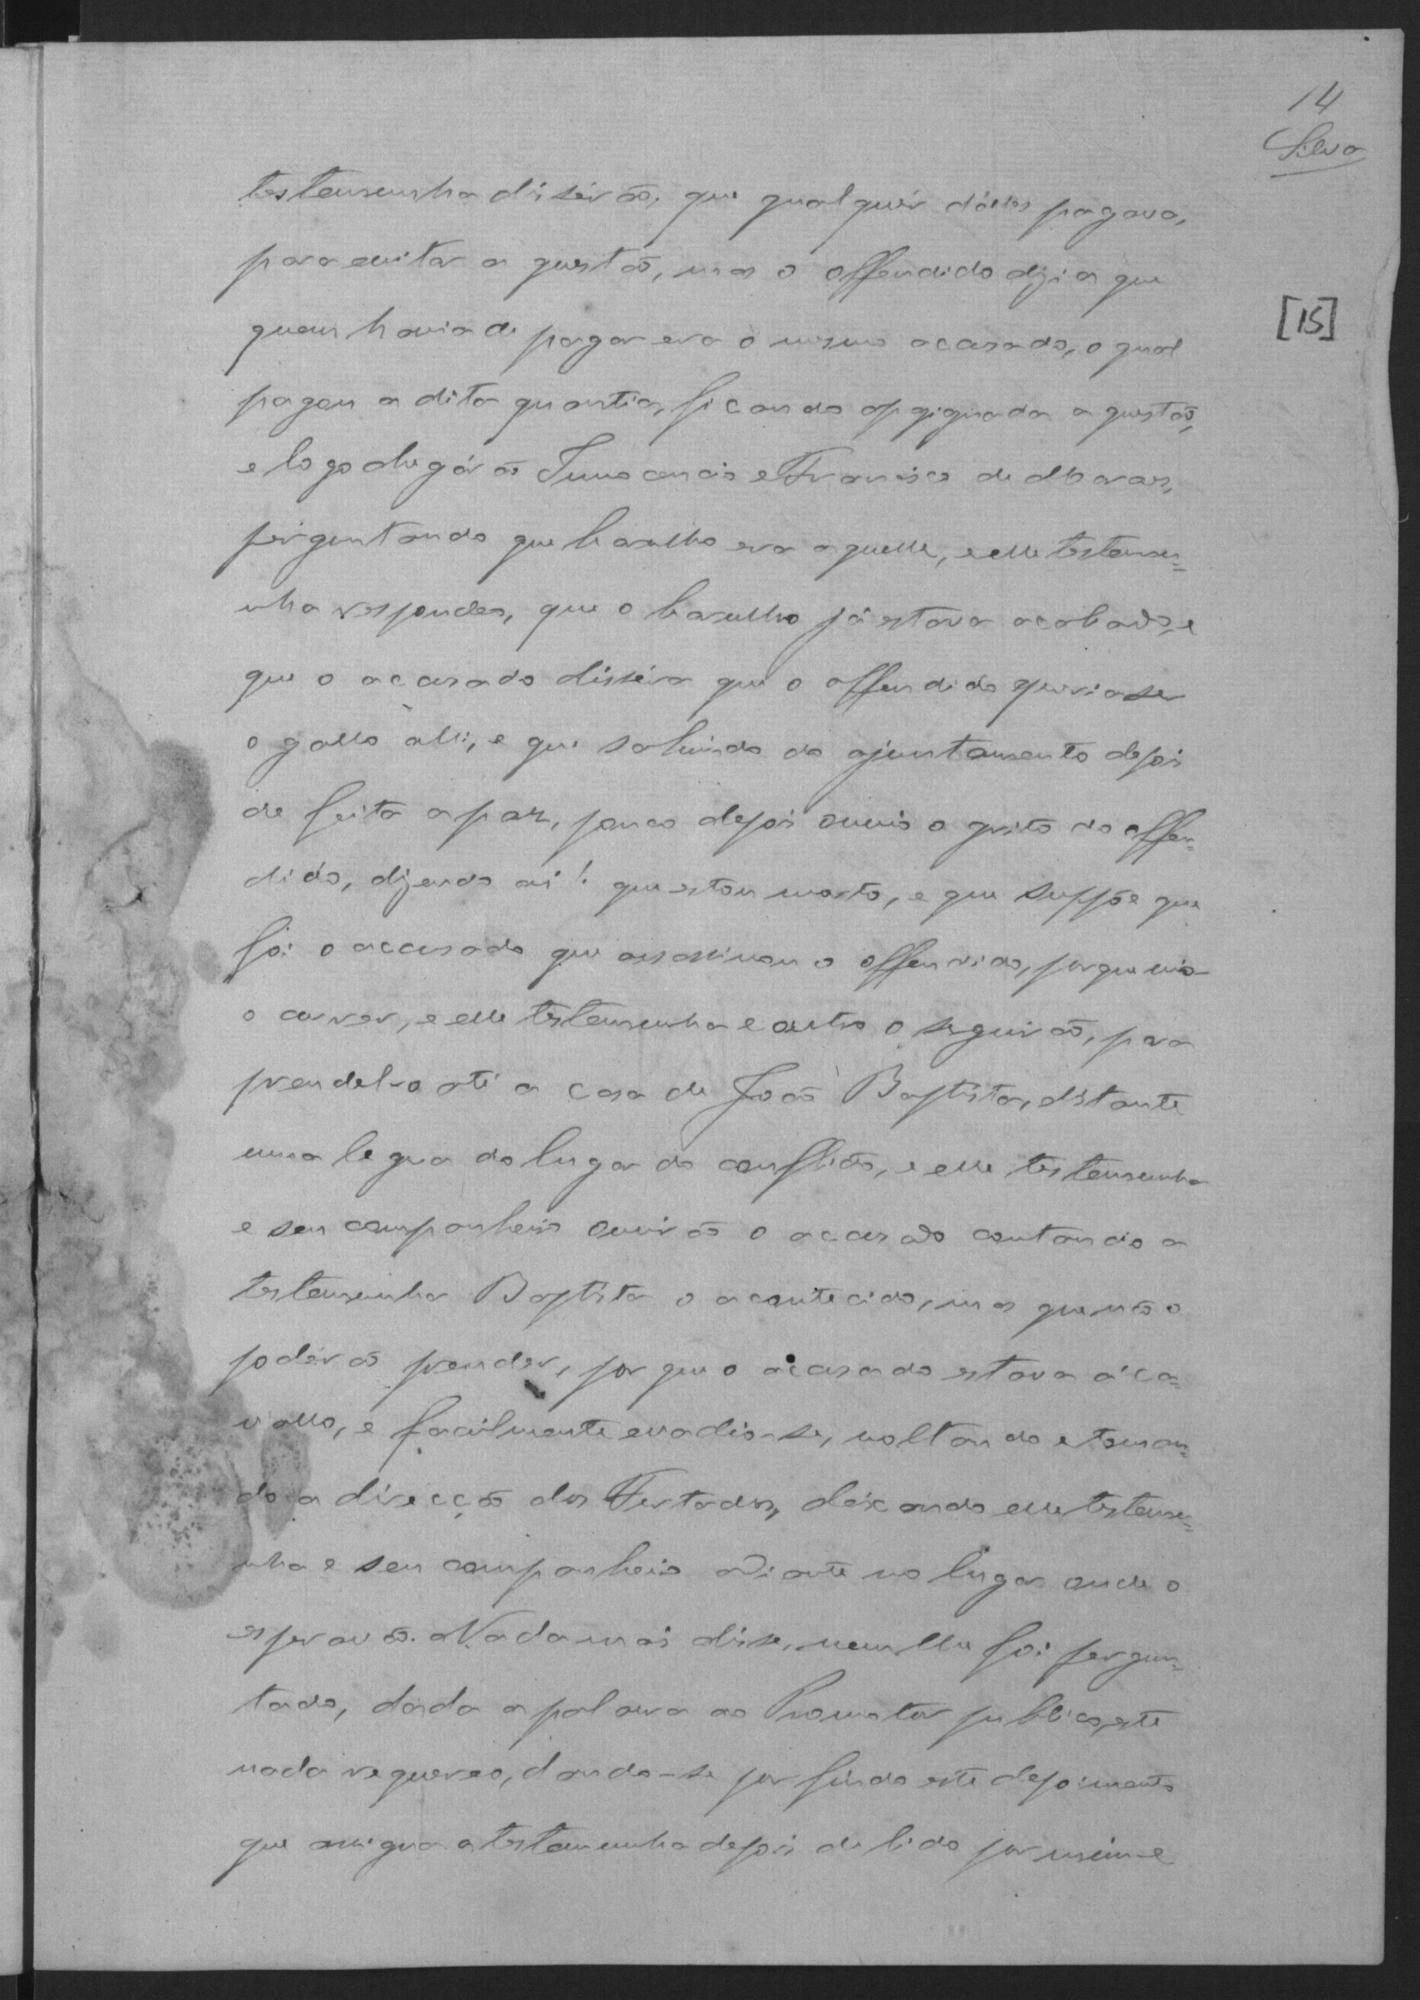 14
Silva
[15]
testemunha disérão, que qualquér délles pagava,
para evitar a questão, mas o offendido dizia que
quem havia de pagar era o mesmo acusado, o qual
pagou a dita quantia, ficando apasiguada a questão,
e logo chegárão Innocencio e Francisco de Moraes,
pérguntando que barulho era aquelle, e elle testemu=
nha respondeo, que o barulho já estava acabado, e
que o acusado disséra que o offendido queria ser
o gallo alli, e que sahindo do ajuntamento depois
de feita a paz, pouco depois ouvio o grito do offen=
dido, dizendo ai! que estou morto, e que suppõe que
foi o accusado que assassinou o offendido, porque vio-
o correr, e elle testemunha e outro o seguirão, para
prendel-o até a casa de João Baptista, distante
uma legua do lugar do conflicto, e elle testemunha
e seu companheiro ouvirão o accusado contando a
testemunha Baptista o acontecido, mas que não o
podérão prender, por que o acusado estava á ca=
vallo, e facilmente evadio-se, voltando e toman=
do a direcção dos Furtados, deixando elle testemu=
nha e seu companheiro adiante no lugar onde o
esperavão. Nada mais disse, nem lhe foi pergun=
tado, dada a palavra ao Promotor publico, este
nada requereo, dando-se por findo este depoimento
que assigna a testemunha depois de lido por mim e